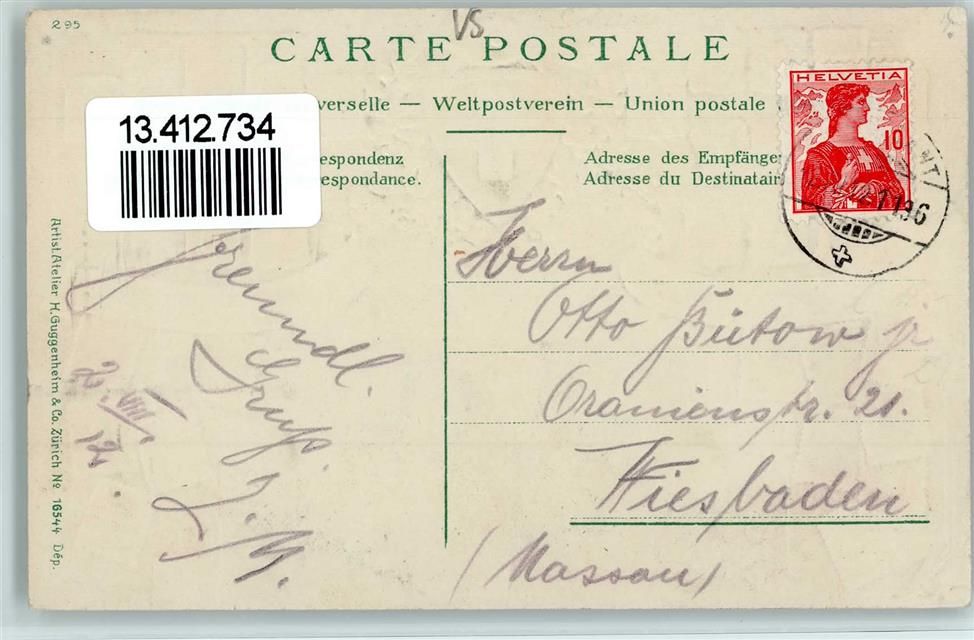 295
VS
CARTE POSTALE
verselle — Weltpostverein — Union postale
espondenz
espondance.
Adresse des Empfänge
Adresse du Destinatair
HELVETIA
10
13.412.734
Freundl.
Gruß.
2. VIII. 12.
Herrn
Otto Bütow jr
Oranienstr. 21.
Wiesbaden
(Nassau)
Artist. Atelier H. Guggenheim & Co. Zürich No 16544 Dép.